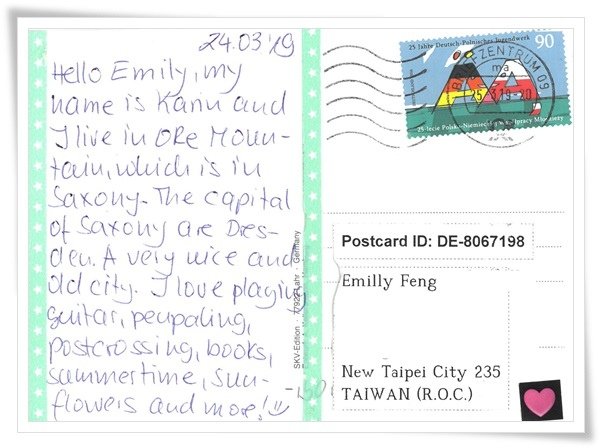 24.03'19
Hello Emily, my
name is Karin and
I live in Ore Moun-
tain, which is in
Saxony. The capital
of Saxony are Dres-
den. A very nice and
old city. I love playing
guitar, penpaling,
postcrossing, books,
summertime, sun-
flowers and more!
SKV-Edition · 77922 Lahr · Germany
25 Jahre Deutsch-Polnisches Jugendwerk
90
25-lecie Polsko-Niemieckiej Współpracy Młodzieży
BRIEFZENTRUM 09
25.3.19-20
Postcard ID: DE-8067198
Emilly Feng
New Taipei City 235
TAIWAN (R.O.C.)